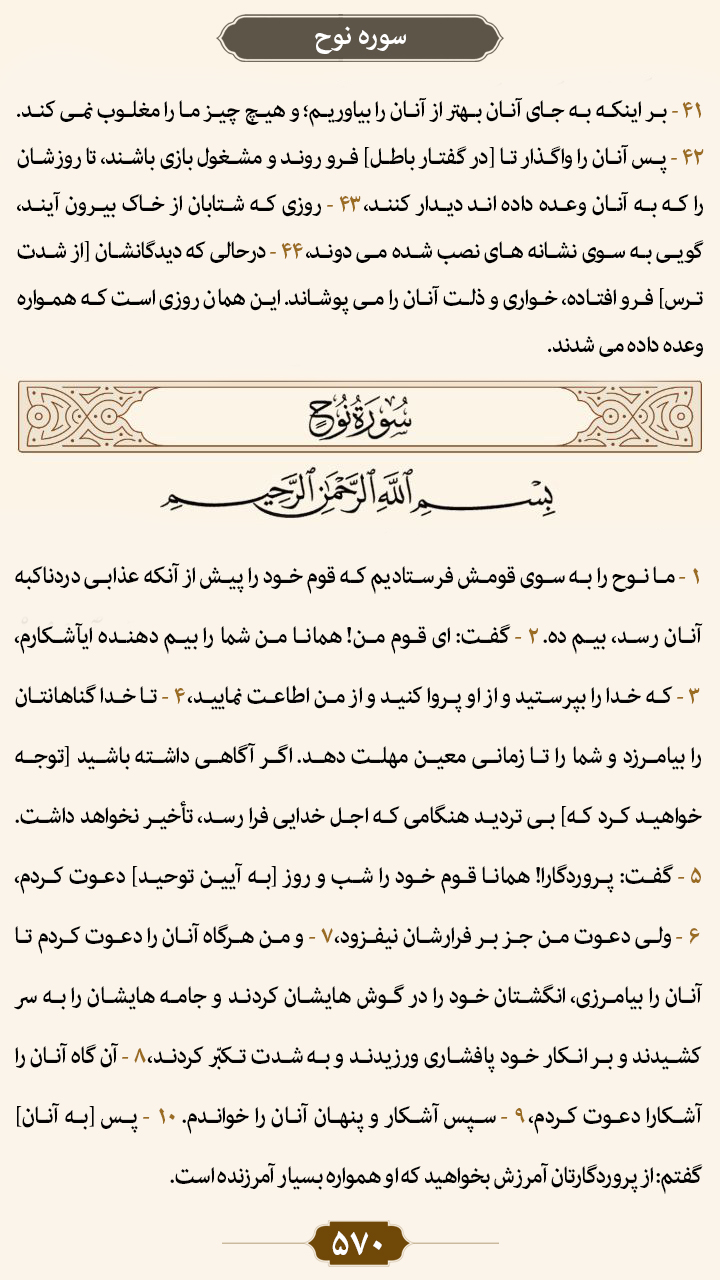 سوره نوح
۴۱ - بر اینکه به جای آنان بهتر از آنان را بیاوریم؛ و هیچ چیز ما را مغلوب نمی کند.
۴۲ - پس آنان را واگذار تا [در گفتار باطل] فرو روند و مشغول بازی باشند، تا روزشان
را که به آنان وعده داده اند دیدار کنند، ۴۳ - روزی که شتابان از خاک بیرون آیند،
گویی به سوی نشانه های نصب شده می دوند، ۴۴ - درحالی که دیدگانشان [از شدت
ترس] فرو افتاده، خواری و ذلت آنان را می پوشاند. این همان روزی است که همواره
وعده داده می شدند.
سُورَةُ نُوحٍ
بِسْمِ ٱللَّهِ ٱلرَّحْمَٰنِ ٱلرَّحِيمِ
۱ - ما نوح را به سوی قومش فرستادیم که قوم خود را پیش از آنکه عذابی دردناکبه
آنان رسد، بیم ده. ۲ - گفت: ای قوم من! همانا من شما را بیم دهنده ایآشکارم،
۳ - که خدا را بپرستید و از او پروا کنید و از من اطاعت نمایید، ۴ - تا خدا گناهانتان
را بیامرزد و شما را تا زمانی معین مهلت دهد. اگر آگاهی داشته باشید [توجه
خواهید کرد که] بی تردید هنگامی که اجل خدایی فرا رسد، تأخیر نخواهد داشت.
۵ - گفت: پروردگارا! همانا قوم خود را شب و روز [به آیین توحید] دعوت کردم،
۶ - ولی دعوت من جز بر فرارشان نیفزود، ۷ - و من هرگاه آنان را دعوت کردم تا
آنان را بیامرزی، انگشتان خود را در گوش هایشان کردند و جامه هایشان را به سر
کشیدند و بر انکار خود پافشاری ورزیدند و به شدت تکبّر کردند، ۸ - آن گاه آنان را
آشکارا دعوت کردم، ۹ - سپس آشکار و پنهان آنان را خواندم. ۱۰ - پس [به آنان]
گفتم: از پروردگارتان آمرزش بخواهید که او همواره بسیار آمرزنده است.
۵۷۰